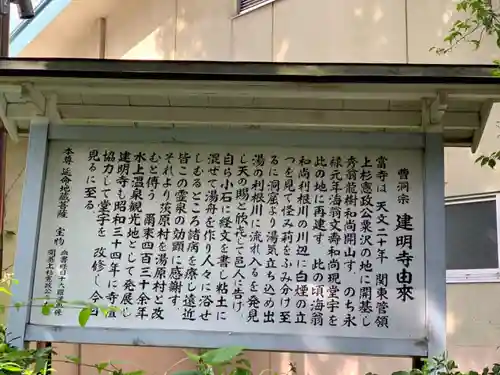 曹洞宗 建明寺由來
當寺は天文二十年 関東管領
上杉憲政公粟沢の地に開基し
秀翁龍樹和尚開山す のち永
禄元年海翁文斎和尚現堂宇を
此の地に再建す 此の頃海翁
和尚利根川の川辺に白煙の立
つを見て怪み莿をふみ分け至
るに洞窟より湯気立ち込め出
湯の利根川に流れ入るを発見
し天の賜と欣喜し邑人に告げ
自ら小石に経文を書し粘土に
混ぜて湯舟を作り人々に浴せ
しむるところ諸病を療し遠近
皆この霊泉の効顕に感謝す
それより此原村を湯原村と改
むと傳う 爾来四百三十余年
水上温泉観光地として発展し
建明寺も昭和三十四年に寺檀
協力して堂宇を 改修し今日
見るに至る
本尊 延命地蔵菩薩 宝物
上杉憲政公位